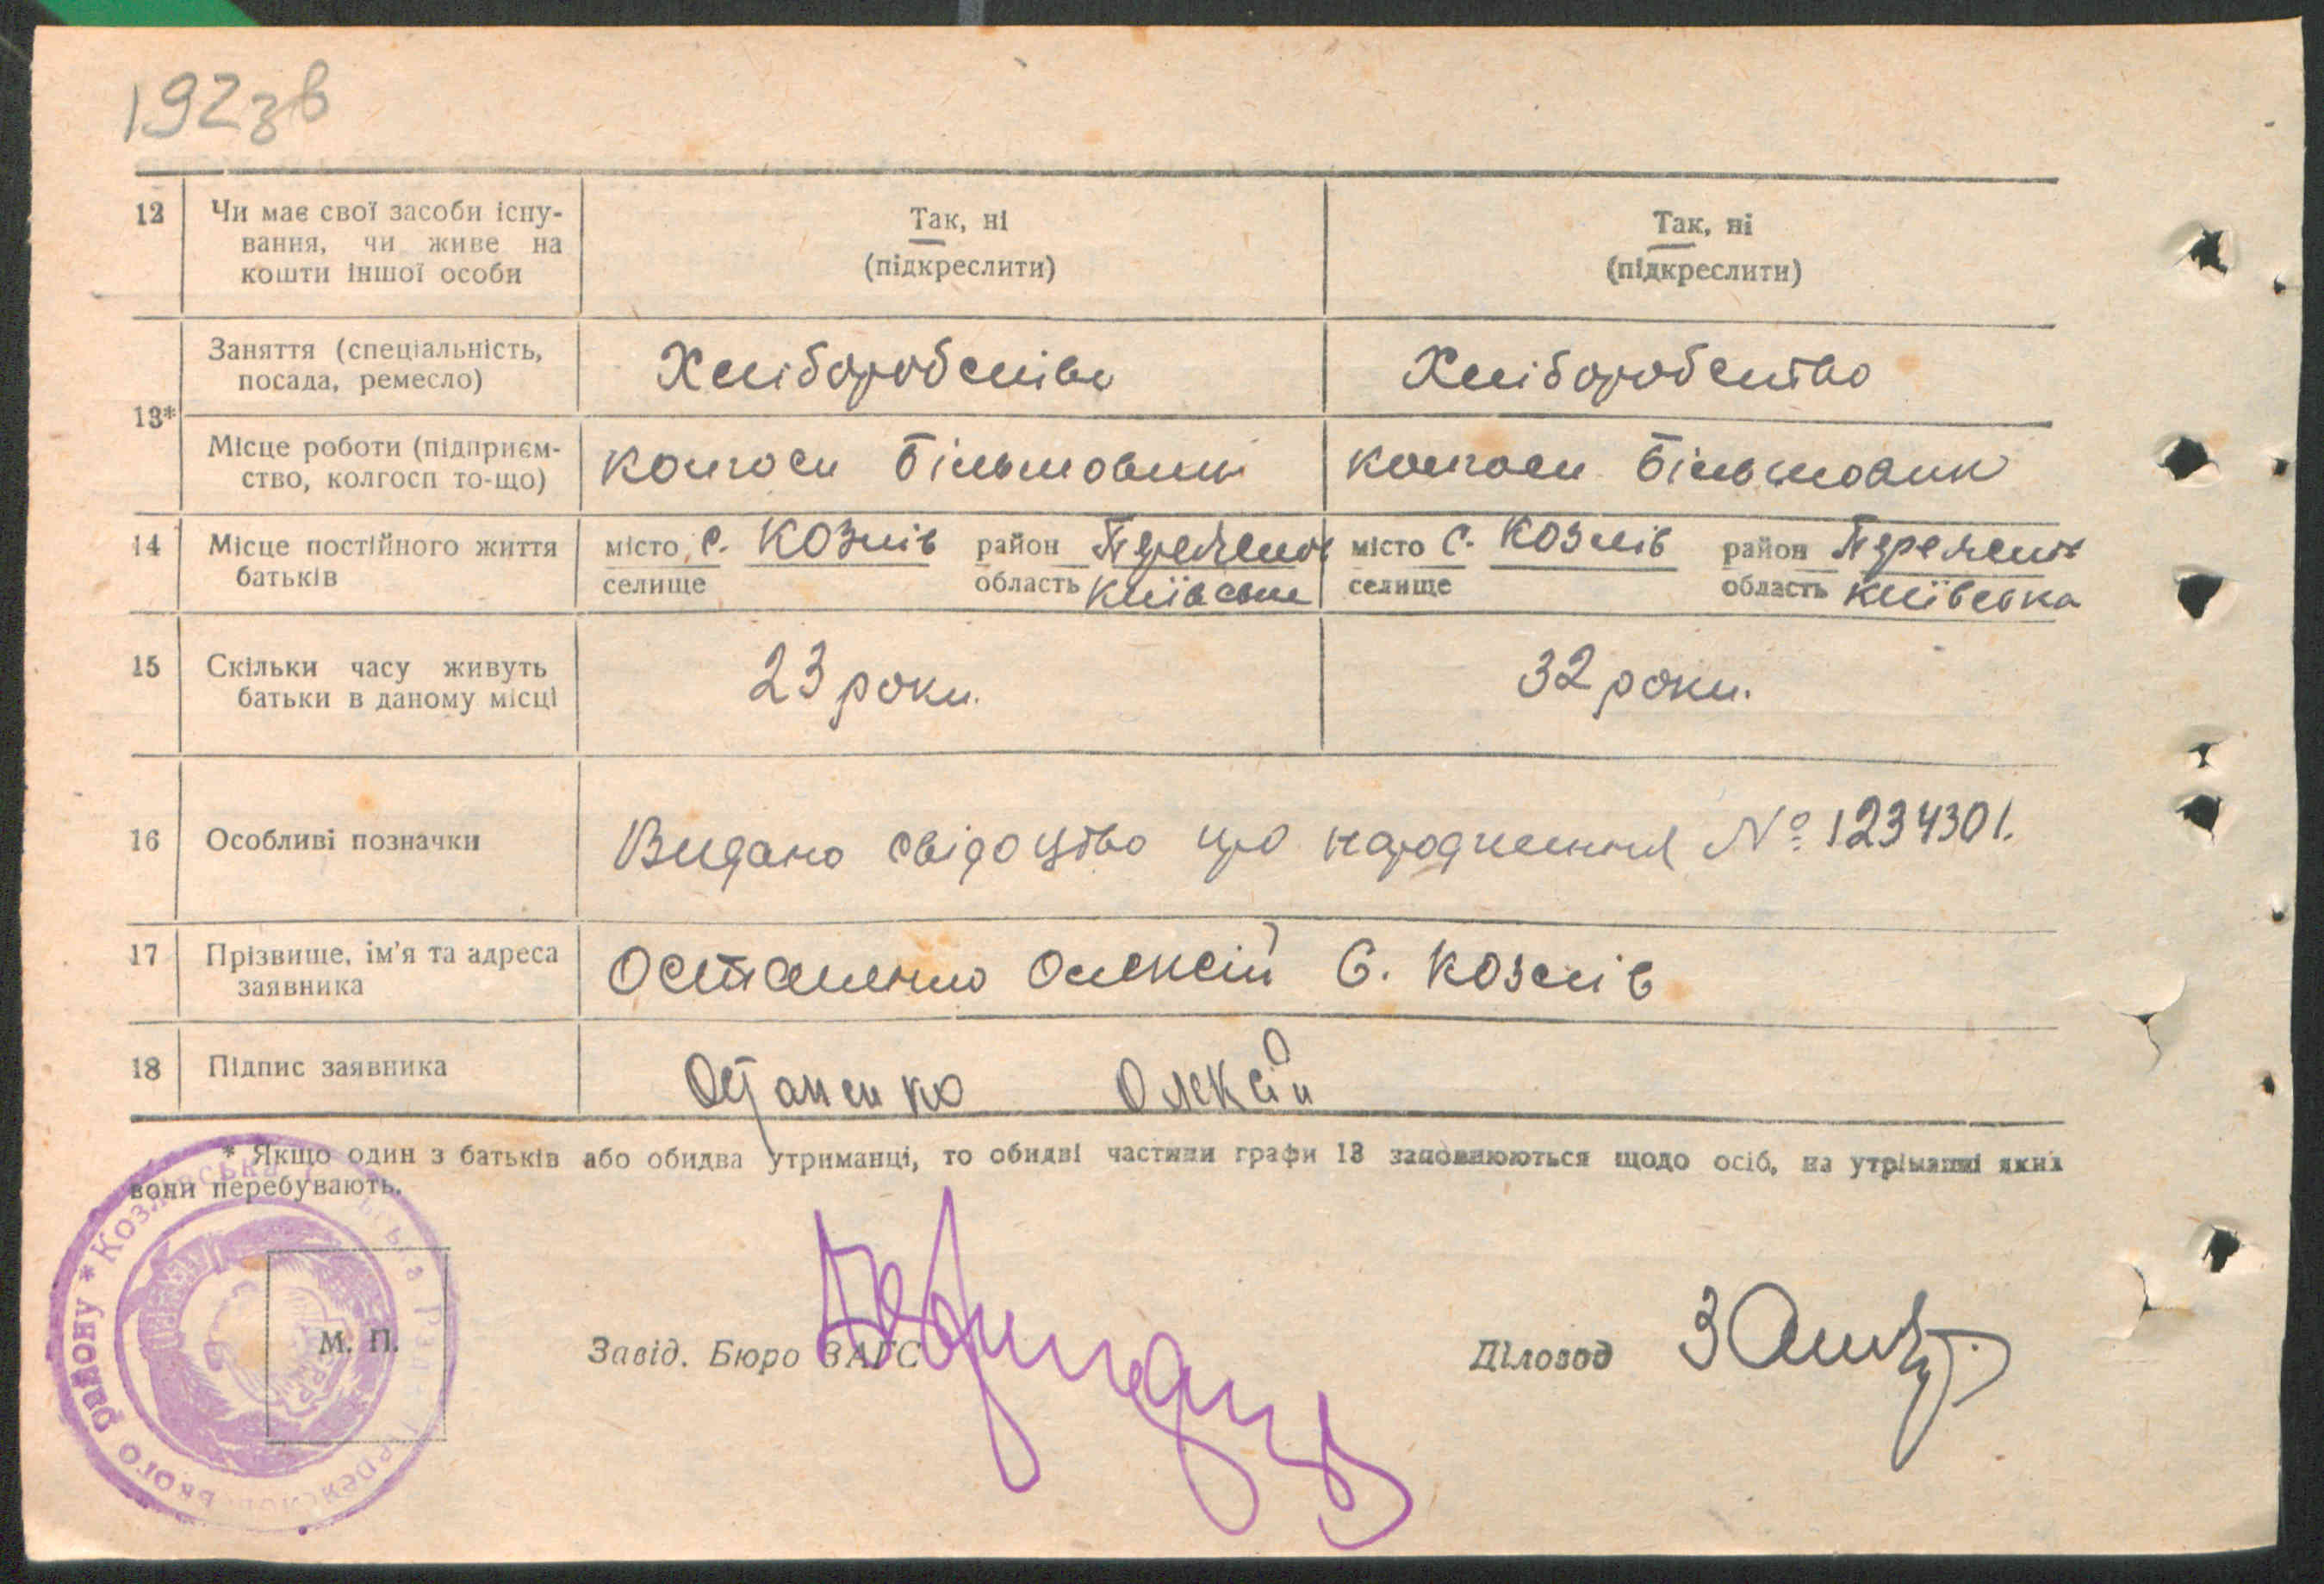 192зв
12 Чи має свої засоби існу- Так, ні Так, ні
вання, чи живе на (підкреслити) (підкреслити)
кошти іншої особи
Заняття (спеціальність, Хліборобство Хліборобство
посада, ремесло)
13*
Місце роботи (підприєм- колгосп Більшовик колгосп Більшовик
ство, колгосп то-що)
14 Місце постійного життя місто с. Козлів район місто с. Козлів район
батьків селище область Київська селище область Київська
15 Скільки часу живуть 23 роки. 32 роки.
батьки в даному місці
16 Особливі позначки Видано свідоцтво про народження № 1234301.
17 Прізвище, ім'я та адреса Остапенко Олексій С. Козлів
заявника
18 Підпис заявника Остапенко Олексій
* Якщо один з батьків або обидва утриманці, то обидві частини графи 13 заповнюються щодо осіб, на утриманні яких
вони перебувають.
М. П.
Завід. Бюро ЗАГС Діловод